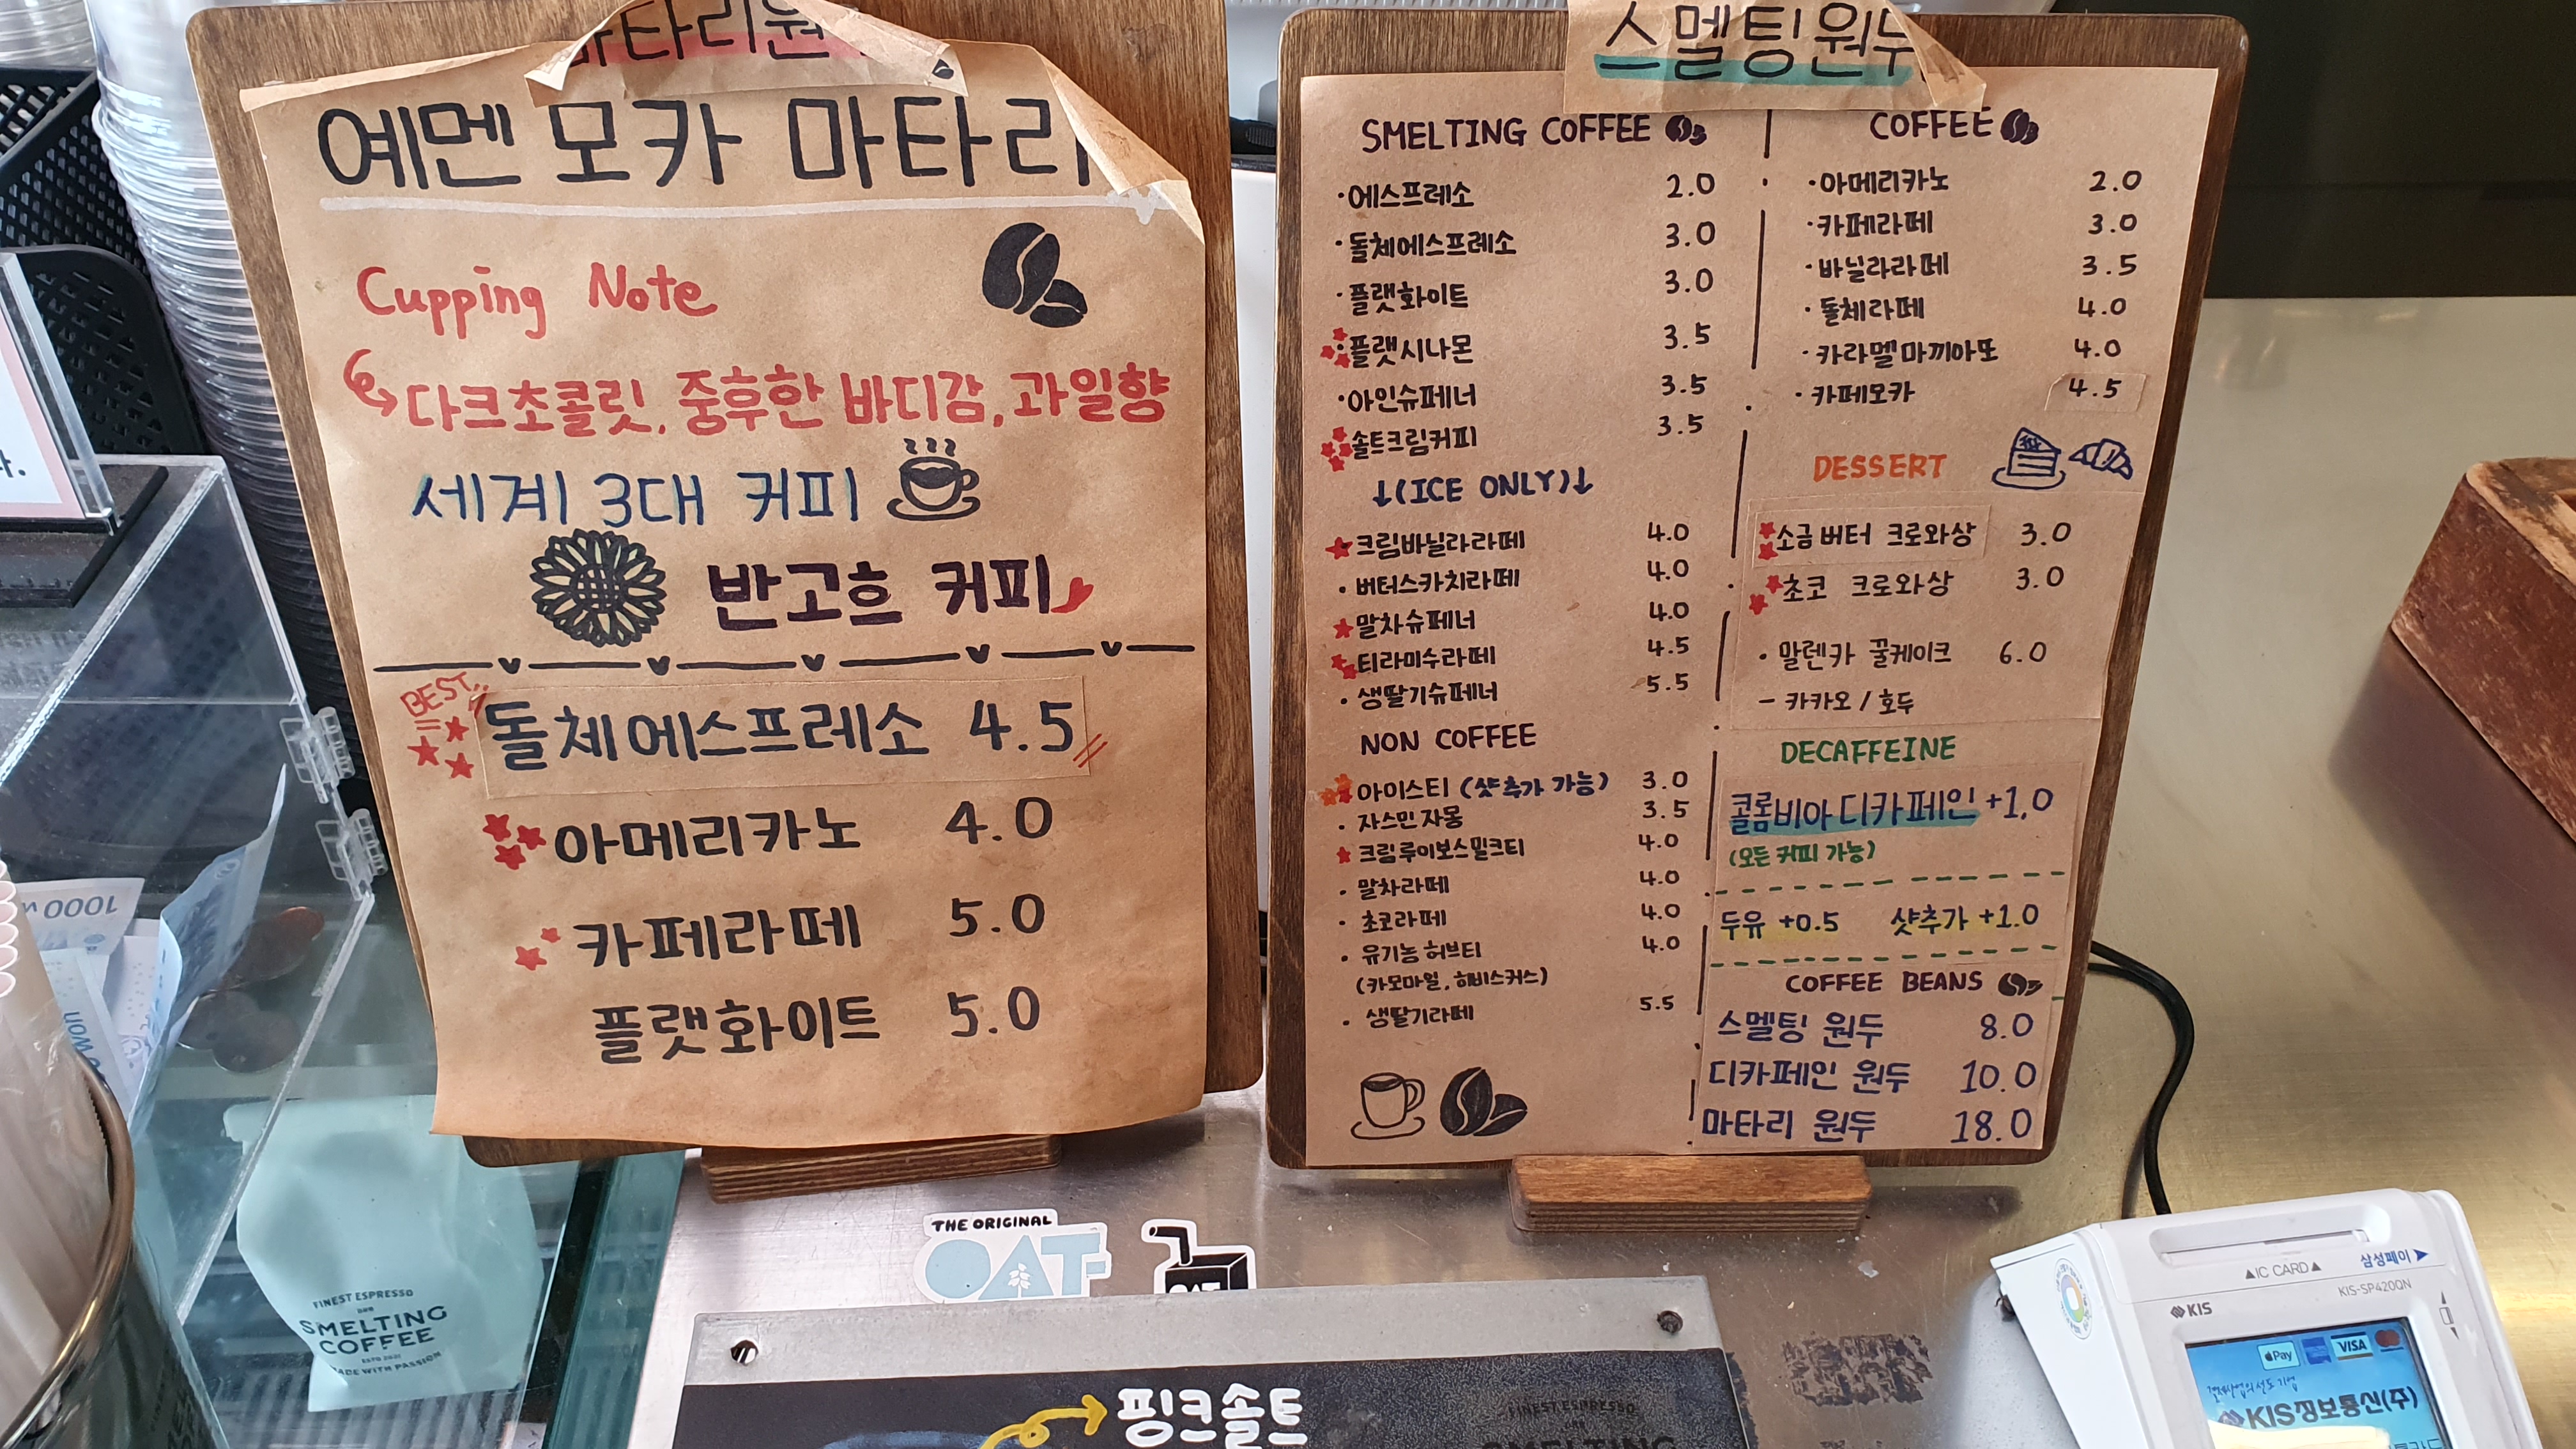 예멘 모카 마타리
Cupping Note
다크초콜릿, 중후한 바디감, 과일향
세계 3대 커피
반고흐 커피
BEST..
돌체에스프레소 4.5
아메리카노 4.0
카페라떼 5.0
플랫화이트 5.0
스멜팅원두
SMELTING COFFEE
·에스프레소 2.0
·돌체에스프레소 3.0
·플랫화이트 3.0
·플랫시나몬 3.5
·아인슈페너 3.5
솔트크림커피 3.5
↓(ICE ONLY)↓
크림바닐라라떼 4.0
·버터스카치라떼 4.0
말차슈페너 4.0
티라미수라떼 4.5
·생딸기슈페너 5.5
NON COFFEE
아이스티 (샷추가 가능) 3.0
·자스민자몽 3.5
크림루이보스밀크티 4.0
·말차라떼 4.0
·초코라떼 4.0
·유기농허브티 4.0
(카모마일, 히비스커스)
·생딸기라떼 5.5
COFFEE
·아메리카노 2.0
·카페라떼 3.0
·바닐라라떼 3.5
·돌체라떼 4.0
·카라멜마끼아또 4.0
·카페모카 4.5
DESSERT
소금버터 크로와상 3.0
초코 크로와상 3.0
·말렌카 꿀케이크 6.0
- 카카오 / 호두
DECAFFEINE
콜롬비아 디카페인 +1.0
(모든 커피 가능)
두유 +0.5 샷추가 +1.0
COFFEE BEANS
스멜팅 원두 8.0
디카페인 원두 10.0
마타리 원두 18.0
1000
won
FINEST ESPRESSO
SMELTING
COFFEE
MADE WITH PASSION
THE ORIGINAL
OAT-
핑크솔트
FINEST ESPRESSO
SMELTING
▲IC CARD▲
삼성페이
KIS-SP420QN
KIS
Pay VISA
KIS정보통신(주)